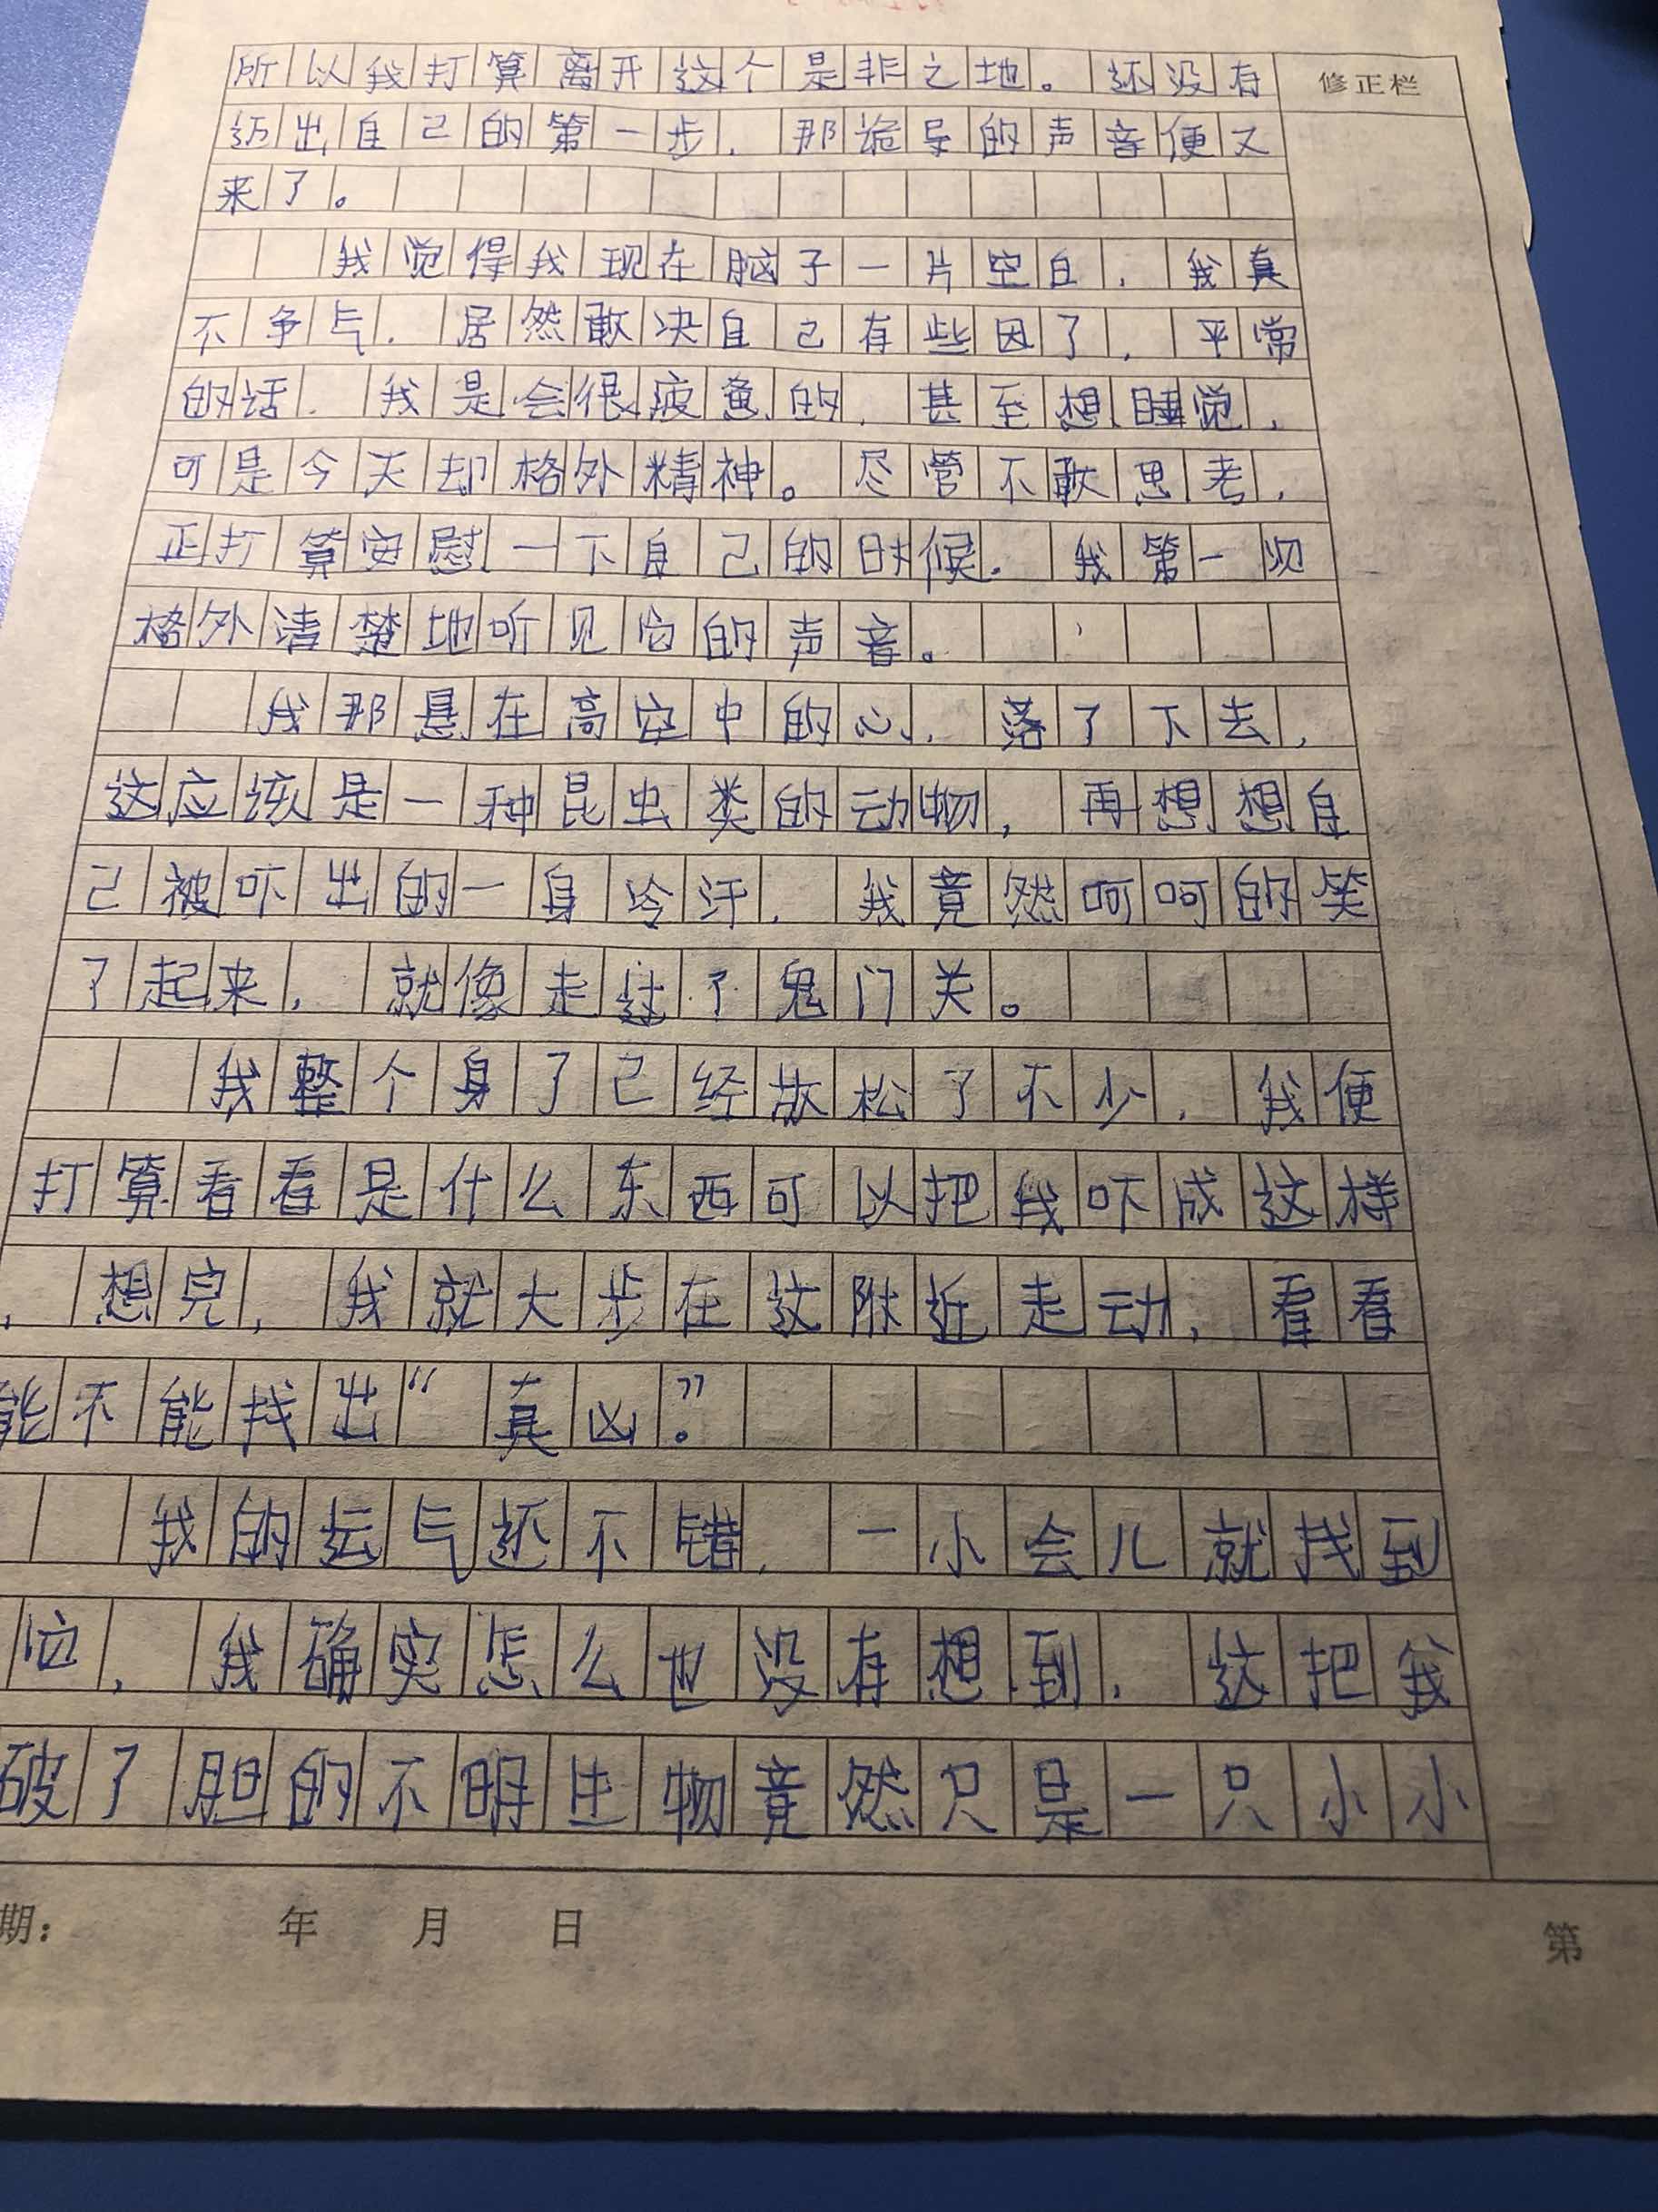 所以我打算离开这个是非之地。还没有
修正栏
迈出自己的第一步，那诡异的声音便又
来了。
我觉得我现在脑子一片空白，我真
不争气，居然敢决自己有些困了，平常
的话，我是会很疲惫的，甚至想睡觉，
可是今天却格外精神。尽管不敢思考，
正打算安慰一下自己的时候，我第一次
格外清楚地听见它的声音。
我那悬在高空中的心，落了下去，
这应该是一种昆虫类的动物，再想想自
己被吓出的一身冷汗，我竟然呵呵的笑
了起来，就像走过了鬼门关。
我整个身了已经放松了不少，我便
打算看看是什么东西可以把我吓成这样
，想完，我就大步在这附近走动，看看
能不能找出“真凶”。
我的运气还不错，一小会儿就找到
它，我确实怎么也没有想到，这把我
破了胆的不明生物竟然只是一只小小
期： 年 月 日 第